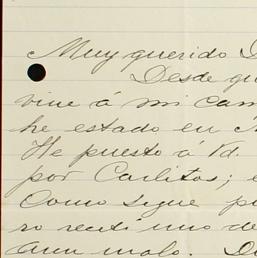 Muy querido D
Desde qu
vine á mi cam
he estado en
He puesto á Vd.
por Carlitos; e
Como sigue po
ro recibí uno de
aun malo. D